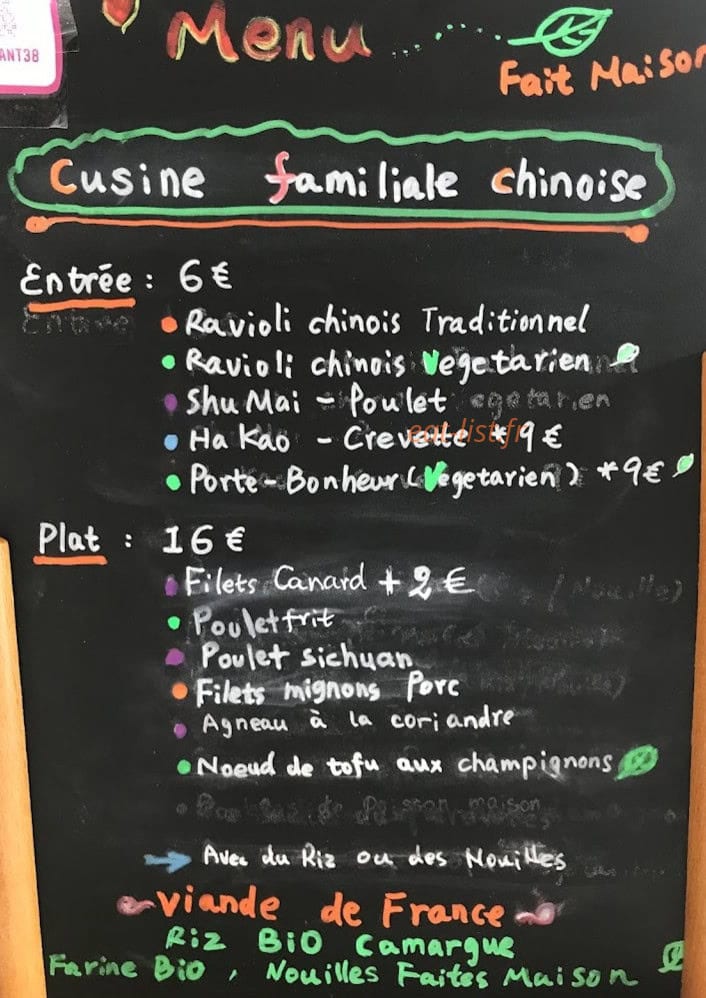 ANT38
Menu
Fait Maison
Cusine familiale chinoise
Entrée : 6€
Entrée
• Ravioli chinois Traditionnel
• Ravioli chinois Vegetarien
• Shu Mai - Poulet egetarien
• Ha Kao - Crevette *9€
eat-list.fr
• Porte-Bonheur (Vegetarien) *9€
Plat : 16€
• Filets Canard + 2€
(Nouille)
• Poulet frit
• Poulet sichuan
• Filets mignons Porc
• Agneau à la coriandre
• Noeud de tofu aux champignons
de Poisson maison
→ Avec du Riz ou des Nouilles
viande de France
Riz BiO Camargue
Farine Bio, Nouilles Faites Maison